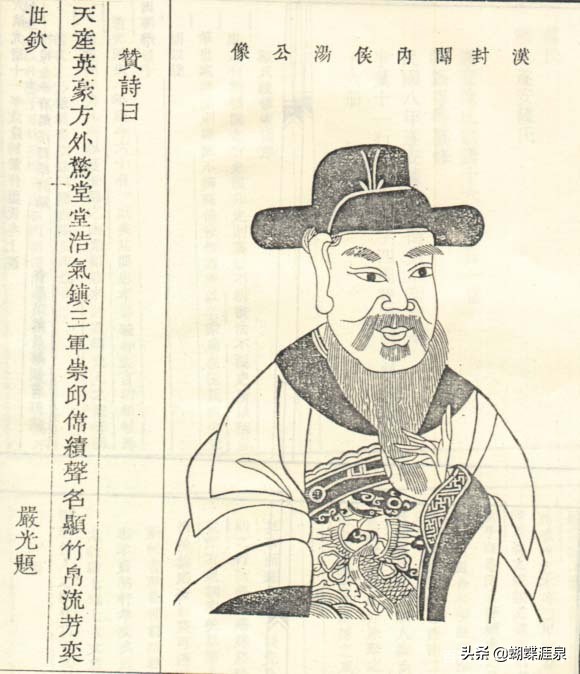 漢封關内侯湯公像
贊詩曰
天產英豪方外驚堂堂浩氣鎭三軍崇邱偹績聲名顯竹帛流芳奕
世欽
嚴光題
头条 @蝴蝶涯泉